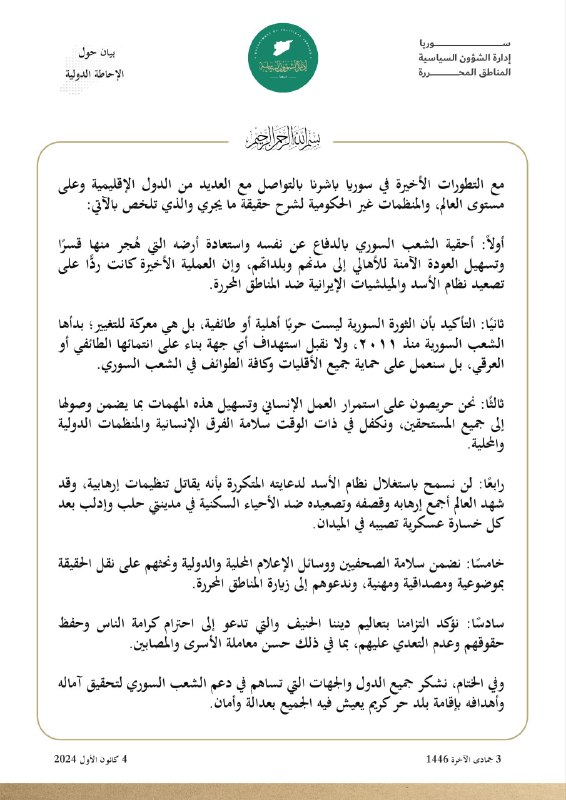 ســـــــــوريا
إدارة الشؤون السياسية
المناطق المحـــررة
إدارة الشؤون السياسية
DEPARTMENT OF POLITICAL AFFAIRS
بيان حول
الإحاطة الدولية
بسم الله الرحمن الرحيم
مع التطورات الأخيرة في سوريا باشرنا بالتواصل مع العديد من الدول الإقليمية وعلى
مستوى العالم، والمنظمات غير الحكومية لشرح حقيقة ما يجري والذي تلخص بالآتي:
أولاً: أحقية الشعب السوري بالدفاع عن نفسه واستعادة أرضه التي هُجر منها قسرًا
وتسهيل العودة الآمنة للأهالي إلى مدنهم وبلداتهم، وإن العملية الأخيرة كانت ردًّا على
تصعيد نظام الأسد والميلشيات الإيرانية ضد المناطق المحررة.
ثانيًا: التأكيد بأن الثورة السورية ليست حربًا أهلية أو طائفية، بل هي معركة للتغيير؛ بدأها
الشعب السورية منذ ٢٠١١، ولا نقبل استهداف أي جهة بناء على انتمائها الطائفي أو
العرقي، بل سنعمل على حماية جميع الأقليات وكافة الطوائف في الشعب السوري.
ثالثًا: نحن حريصون على استمرار العمل الإنساني وتسهيل هذه المهمات بما يضمن وصولها
إلى جميع المستحقين، ونكفل في ذات الوقت سلامة الفرق الإنسانية والمنظمات الدولية
والمحلية.
رابعًا: لن نسمح باستغلال نظام الأسد لدعايته المتكررة بأنه يقاتل تنظيمات إرهابية، وقد
شهد العالم أجمع إرهابه وقصفه وتصعيده ضد الأحياء السكنية في مدينتي حلب وإدلب بعد
كل خسارة عسكرية تصيبه في الميدان.
خامسًا: نضمن سلامة الصحفيين ووسائل الإعلام المحلية والدولية ونحثهم على نقل الحقيقة
بموضوعية ومصداقية ومهنية، وندعوهم إلى زيارة المناطق المحررة.
سادسًا: نؤكد التزامنا بتعاليم ديننا الحنيف والتي تدعو إلى احترام كرامة الناس وحفظ
حقوقهم وعدم التعدي عليهم، بما في ذلك حسن معاملة الأسرى والمصابين.
وفي الختام، نشكر جميع الدول والجهات التي تساهم في دعم الشعب السوري لتحقيق آماله
وأهدافه بإقامة بلد حر كريم يعيش فيه الجميع بعدالة وأمان.
3 جمادى الآخرة 1446
4 كانون الأول 2024